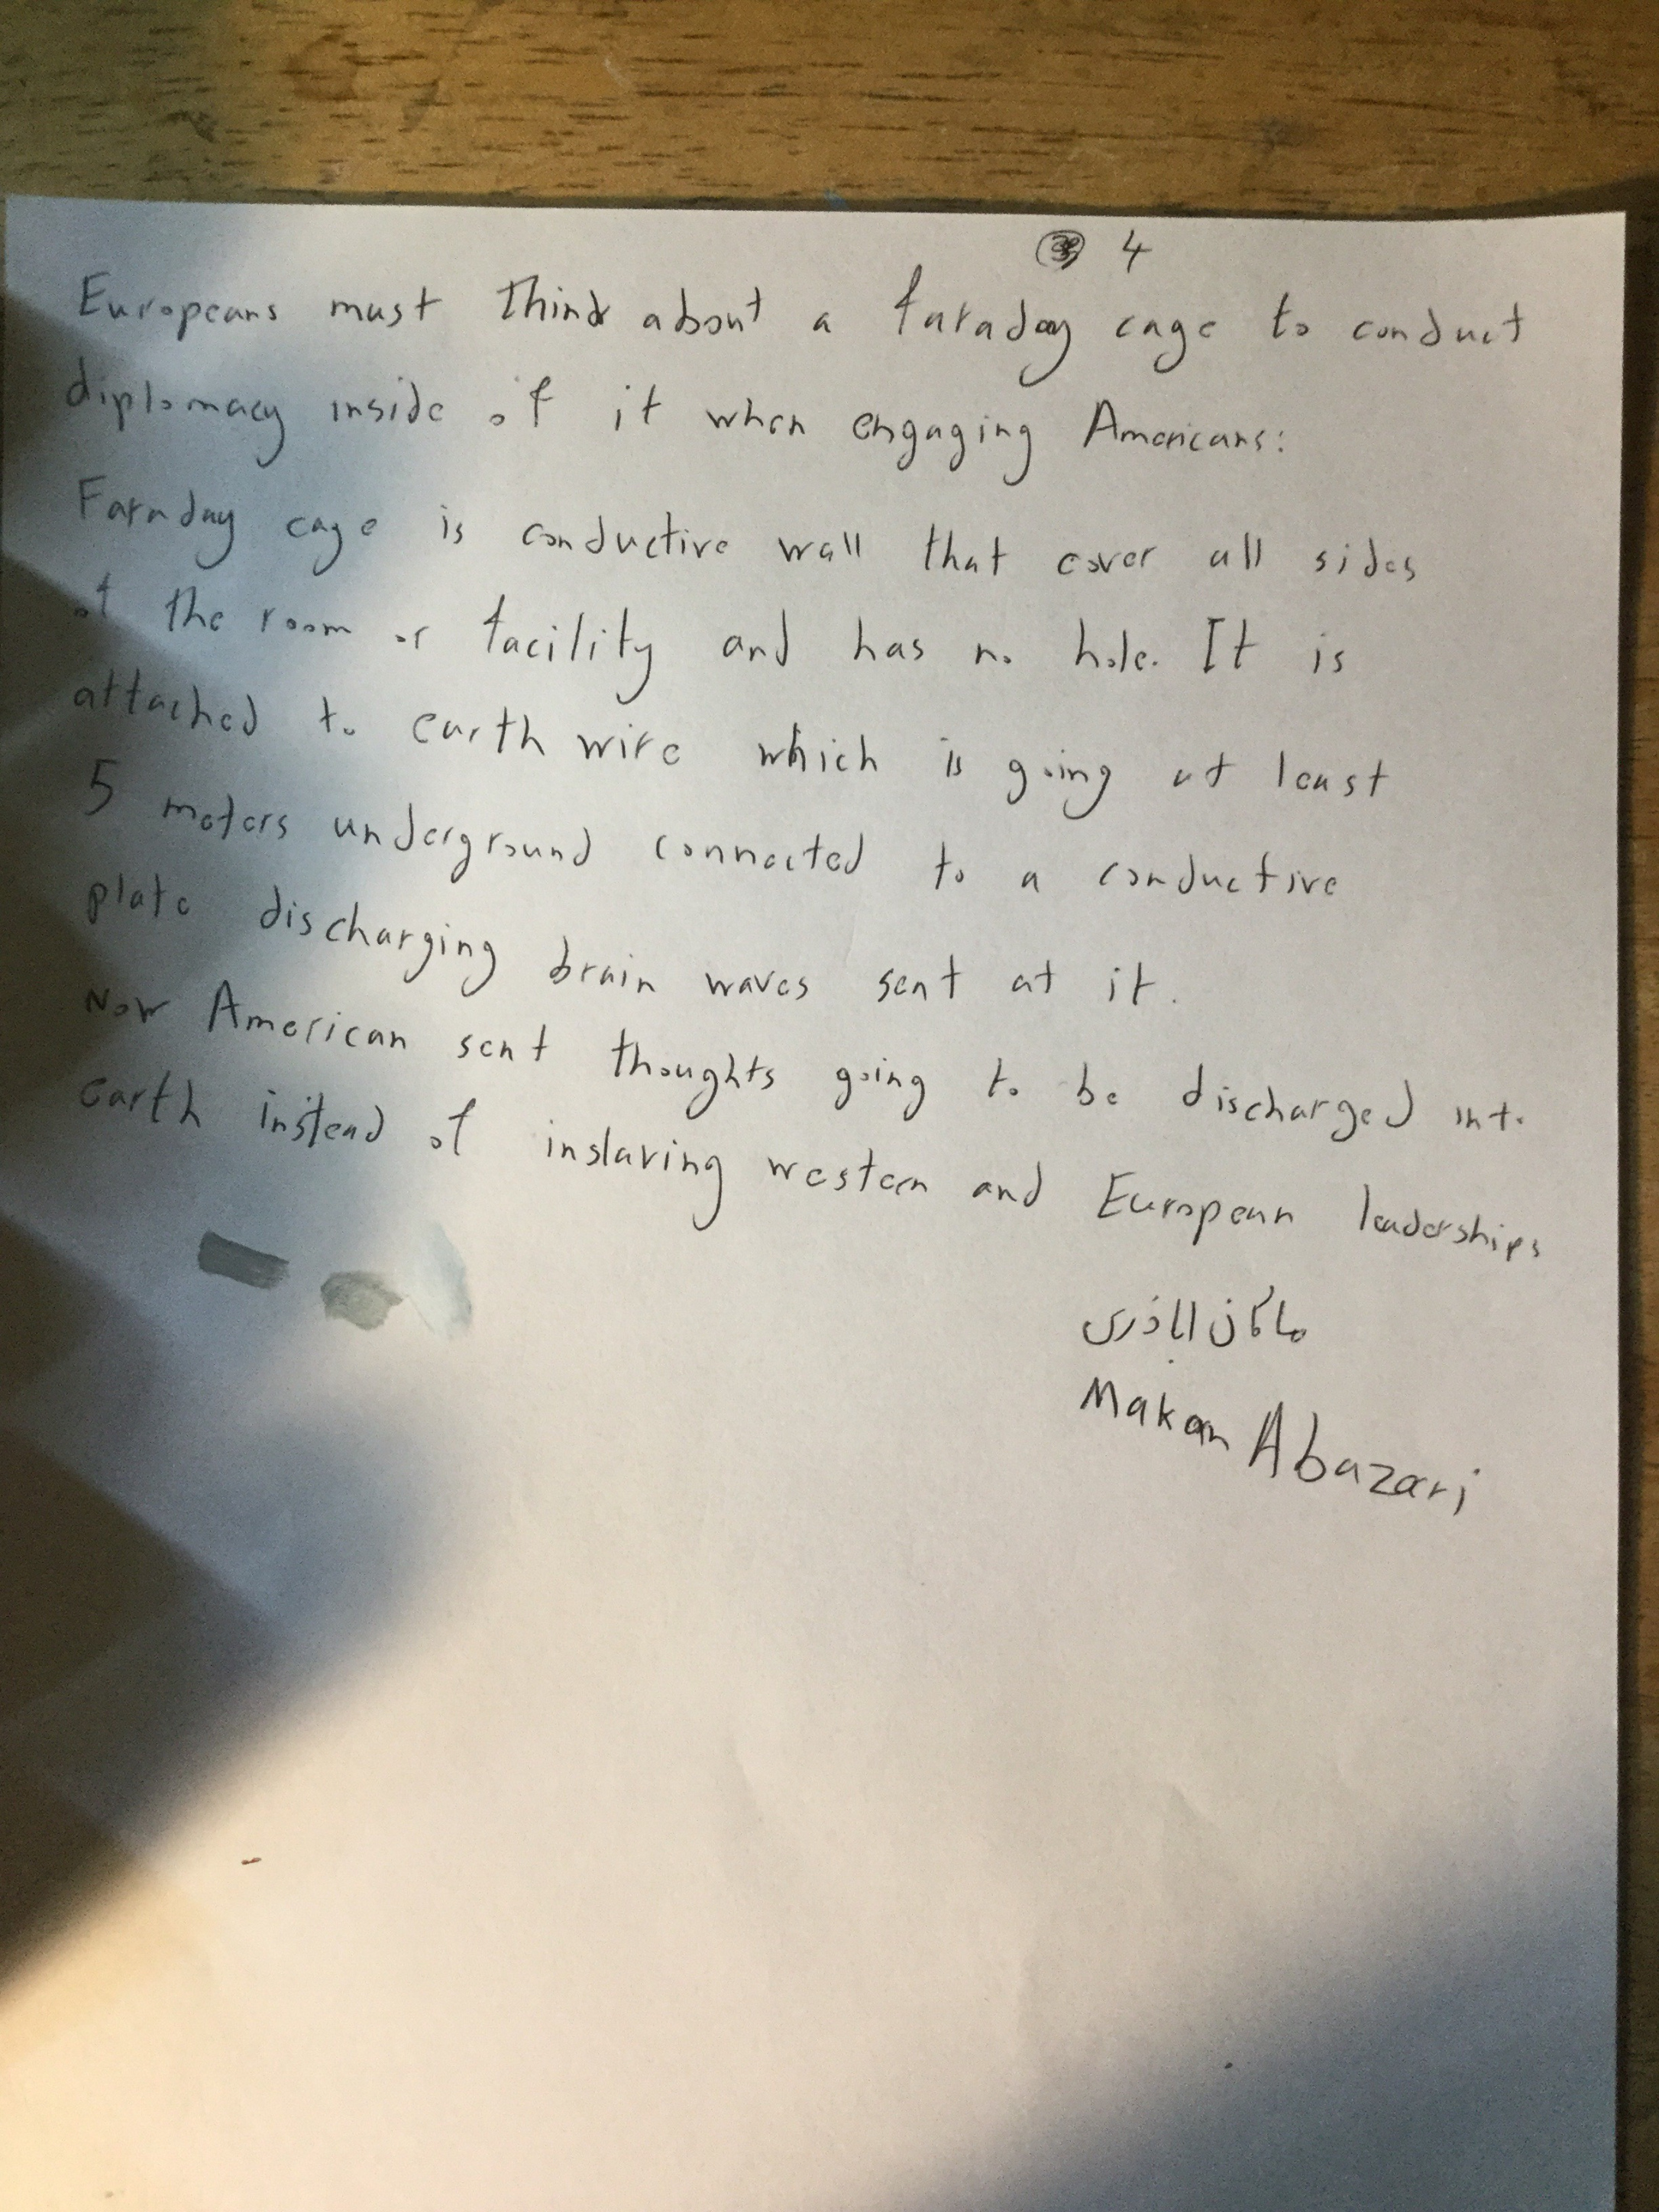 4
Europeans must think about a faraday cage to conduct
diplomacy inside of it when engaging Americans:
Faraday cage is conductive wall that cover all sides
of the room or facility and has no hole. It is
attached to earth wire which is going at least
5 meters underground connected to a conductive
plate discharging brain waves sent at it.
Now American sent thoughts going to be discharged into
earth instead of inslaving western and European leaderships
ماکان اباذری
Makan Abazari